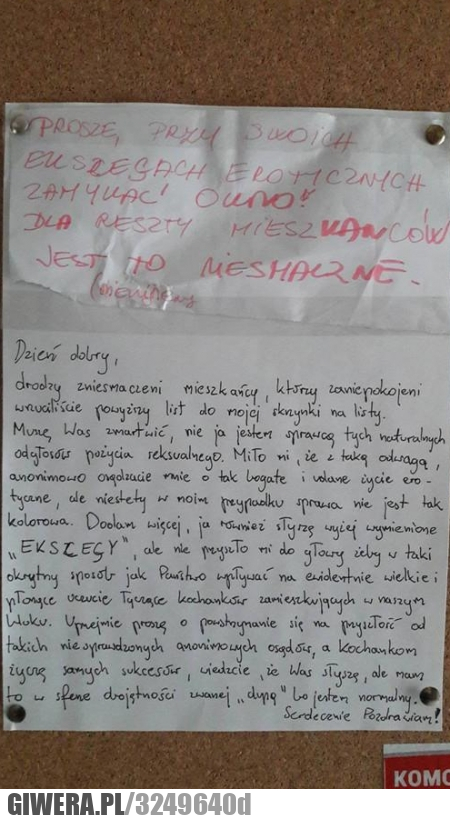 PROSZĘ, PRZY SWOICH
EKSCESACH EROTYCZNYCH
ZAMYKAĆ OKNO!
DLA RESZTY MIESZKAŃCÓW
JEST TO NIESMACZNE.
Dzień dobry,
drodzy zniesmaczeni mieszkańcy, którzy zaniepokojeni
wrzuciliście powyższy list do mojej skrzynki na listy.
Muszę Was zmartwić, nie ja jestem sprawcą tych naturalnych
odgłosów pożycia seksualnego. Miło mi, że z taką odwagą,
anonimowo osądzacie mnie o tak bogate i udane życie ero-
tyczne, ale niestety w moim przypadku sprawa nie jest tak
kolorowa. Dodam więcej, ja również słyszę wyżej wymienione
„EKSCESY", ale nie przyszło mi do głowy żeby w taki
okrutny sposób jak Państwo wpływać na ewidentnie wielkie i
płonące uczucie łyczące kochanków zamieszkujących w naszym
bloku. Uprzejmie proszę o powstrzymanie się na przyszłość od
takich niesprawdzonych anonimowych osądów, a kochankom
życzę samych sukcesów, wiedzcie, że Was słyszę, ale mam
to w sferze obojętności zwanej „dupą" bo jestem normalny.
Serdecznie Pozdrawiam!
KOMO
GIWERA.PL/3249640d